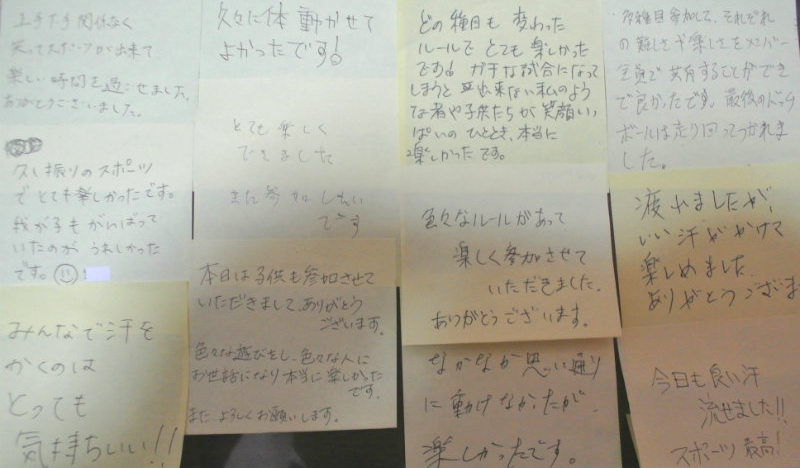 上手下手関係なく
笑ってスポーツが出来て
楽しい時間を過ごせました。
ありがとうございました。
久し振りのスポーツ
でとても楽しかったです。
我が子もがんばって
いたのが うれしかった
です。
みんなで汗を
かくのは
とっても
気持ちいい!!
久々に体 動かせて
よかったです!
とても楽しく
できました
また参加したい
です
本日は子供も参加させて
いただきまして、ありがとう
ございます。
色々な遊びをし、色々な人に
お世話になり本当に楽しかった
です。
また、よろしくお願いします。
どの種目も 変わった
ルールで とても楽しかった
です! ガチな試合になって
しまうと 出来ない私のよう
な者や子供たちが 笑顔いっ
ぱいの ひととき、本当に
楽しかったです。
色々なルールがあって
楽しく参加させて
いただきました。
ありがとうございます。
なかなか思い通り
に動けなかったが、
楽しかったです。
多種目参加して、それぞれ
の難しさや楽しさをメンバー
全員で共有することができ
て良かったです。最後のドッヂ
ボールは走り回ってつかれま
した。
疲れましたが、
いい汗がかけて
楽しめました。
ありがとうございま
今日も良い汗
流せました!!
スポーツ最高!